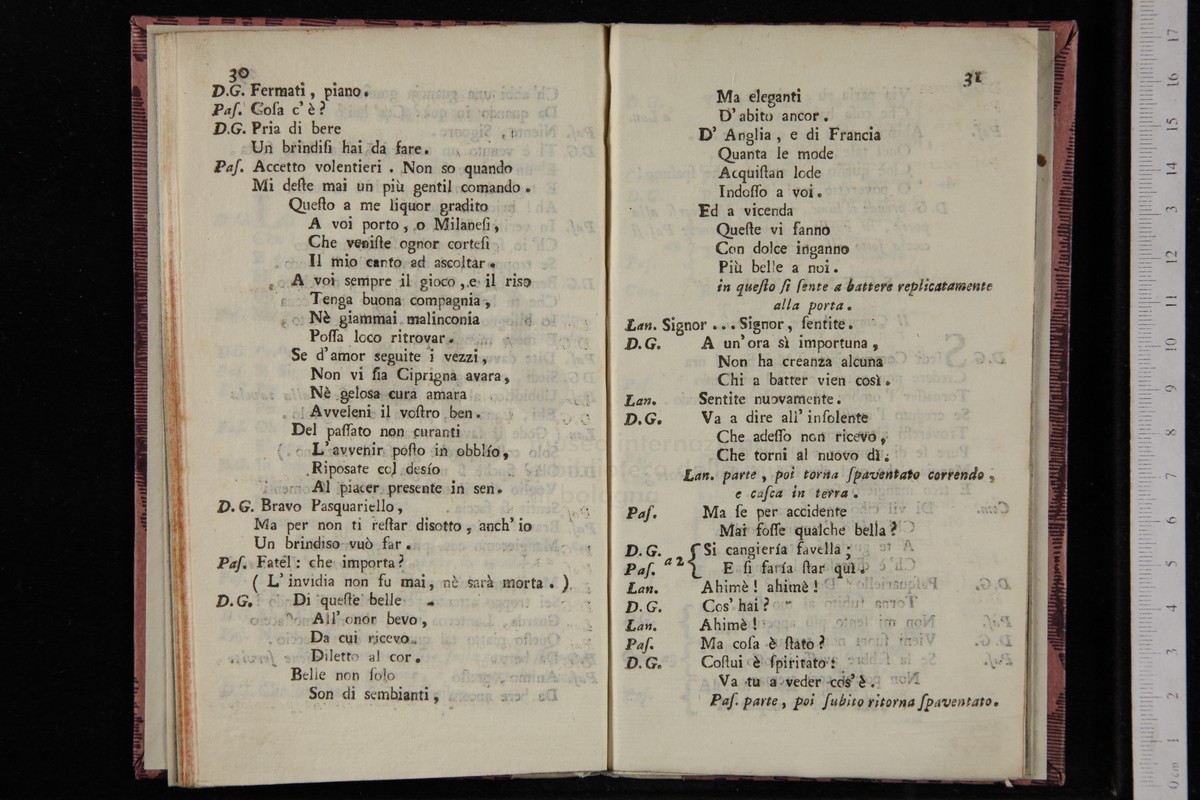 30
D.G. Fermati, piano.
Paſ. Coſa c' è?
D.G. Pria di bere
Un brindiſi hai da fare.
Paſ. Accetto volentieri. Non so quando
Mi deſte mai un più gentil comando.
Queſto a me liquor gradito
A voi porto, o Milaneſi,
Che veniſte ognor corteſi
Il mio canto ad ascoltar.
A voi sempre il gioco, e il riso
Tenga buona compagnia,
Nè giammai malinconia
Poſſa loco ritrovar.
Se d'amor seguite i vezzi,
Non vi ſia Ciprigna avara,
Nè gelosa cura amara
Avveleni il voſtro ben.
Del paſſato non curanti
L'avvenir poſto in obblío,
Riposate col desío
Al piacer presente in sen.
D. G. Bravo Pasquariello,
Ma per non ti reſtar disotto, anch' io
Un brindiso vuò far.
Paſ. Fatel: che importa?
( L' invidia non fu mai, nè sarà morta. )
D.G. Di queſte belle
All' onor bevo,
Da cui ricevo
Diletto al cor.
Belle non ſolo
Son di sembianti,
31
Ma eleganti
D' abito ancor.
D' Anglia, e di Francia
Quanta le mode
Acquiſtan lode
Indoſſo a voi.
Ed a vicenda
Queſte vi fanno
Con dolce inganno
Più belle a noi.
in queſto ſi ſente a battere replicatamente
alla porta.
Lan. Signor ... Signor, ſentite.
D.G. A un' ora sì importuna,
Non ha creanza alcuna
Chi a batter vien così.
Lan. Sentite nuovamente.
D.G. Va a dire all' inſolente
Che adeſſo non ricevo,
Che torni al nuovo dì.
Lan. parte, poi torna ſpaventato correndo,
e caſca in terra.
Paſ. Ma ſe per accidente
Mai foſſe qualche bella?
D.G. Si cangiería favella;
Paſ. a 2 { E ſi faría ſtar quì.
Lan. Ahimè! ahimè!
D. G. Cos' hai?
Lan. Ahimè!
Paſ. Ma coſa è ſtato?
D.G. Coſtui è ſpiritato:
Va tu a veder cos' è.
Paſ. parte, poi ſubito ritorna ſpaventato.